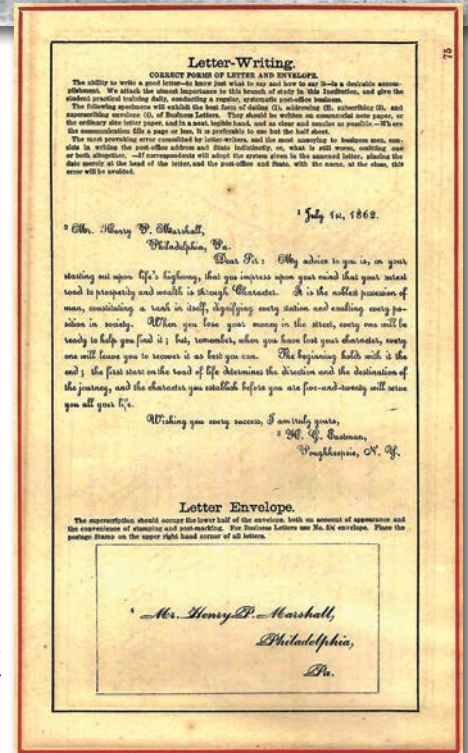 75
Letter-Writing.
CORRECT FORMS OF LETTER AND ENVELOPE.
The ability to write a good letter—to know just what to say and how to say it—is a desirable accom-
plishment. We attach the utmost importance to this branch of study in this Institution, and give the
student practical training daily, conducting a regular, systematic post-office business.
The following specimens will exhibit the best form of dating (1), addressing (2), subscribing (3), and
superscribing envelope (4), of Business Letters. They should be written on commercial note paper, or
the ordinary size letter paper, and in a neat, legible hand, and as clear and concise as possible.—Where
the communication fills a page or less, it is preferable to use but the half sheet.
The most provoking error committed by letter-writers, and the most annoying to business men, con-
sists in writing the post-office address and State indistinctly, or, what is still worse, omitting one
or both altogether. —If correspondents will adopt the system given in the annexed letter, placing the
date merely at the head of the letter, and the post-office and State, with the name, at the close, this
error will be avoided.
1 July 1st, 1862.
2 Mr. Henry P. Marshall,
Philadelphia, Pa.
Dear Sir: My advice to you is, on your
starting out upon life's highway, that you impress upon your mind that your surest
road to prosperity and wealth is through Character. It is the noblest possession of
man, constituting a rank in itself, dignifying every station and exalting every po-
sition in society. When you lose your money in the street, every one will be
ready to help you find it; but, remember, when you have lost your character, every
one will leave you to recover it as best you can. The beginning holds with it the
end; the first start on the road of life determines the direction and the destination of
the journey, and the character you establish before you are five-and-twenty will serve
you all your life.
Wishing you every success, I am truly yours,
3 H. G. Eastman,
Poughkeepsie, N. Y.
Letter Envelope.
The superscription should occupy the lower half of the envelope, both on account of appearance and
the convenience of stamping and post-marking. For Business Letters use No. 5½ envelope. Place the
postage Stamp on the upper right hand corner of all letters.
4 Mr. Henry P. Marshall,
Philadelphia,
Pa.